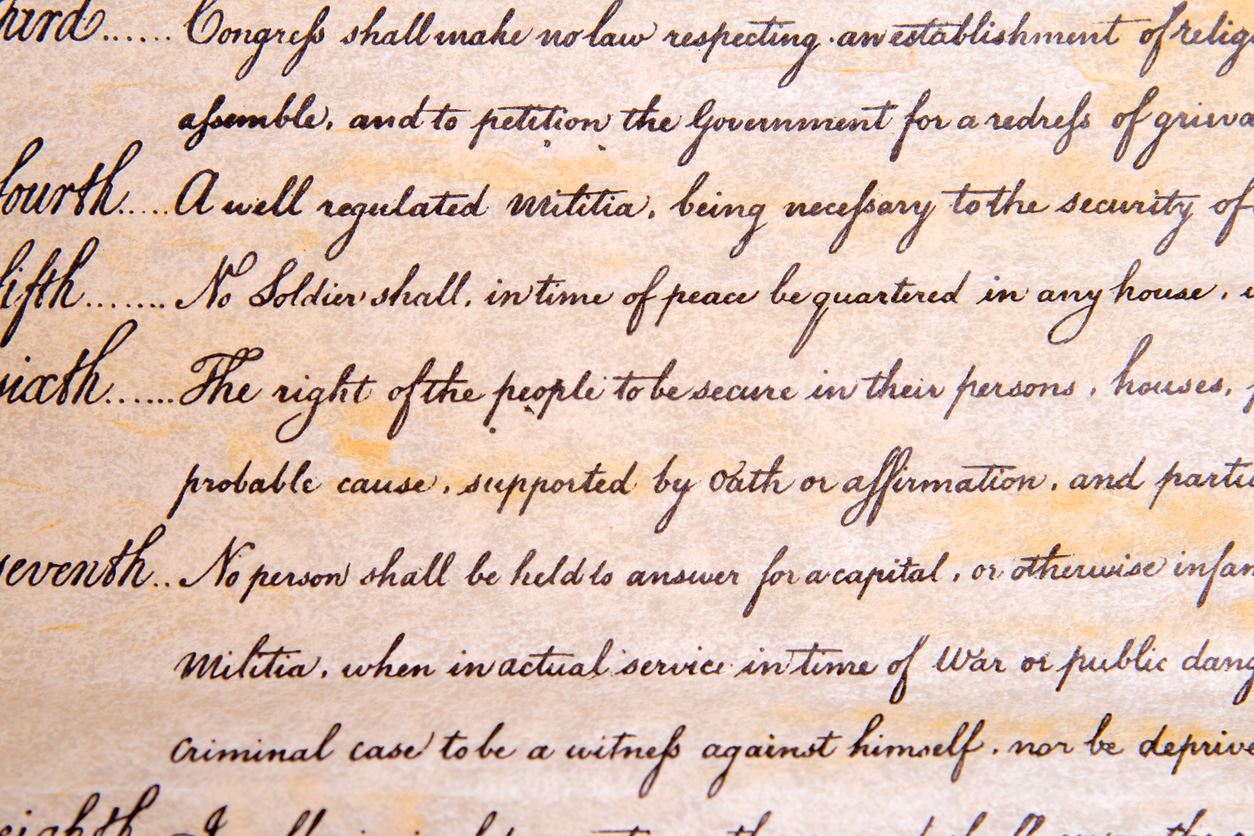 hird...... Congreſs shall make no law respecting an establishment of relig
aſsemble, and to petition the Government for a redreſs of grieva
fourth..... A well regulated Militia, being neceſsary to the security of
fifth....... No Soldier shall, in time of peace be quartered in any house,
sixth...... The right of the people to be secure in their persons, houses,
probable cause, supported by Oath or affirmation, and partic
seventh.. No person shall be held to answer for a capital, or otherwise infam
Militia, when in actual service in time of War or public dang
criminal case to be a witneſs against himself, nor be deprive
eighth